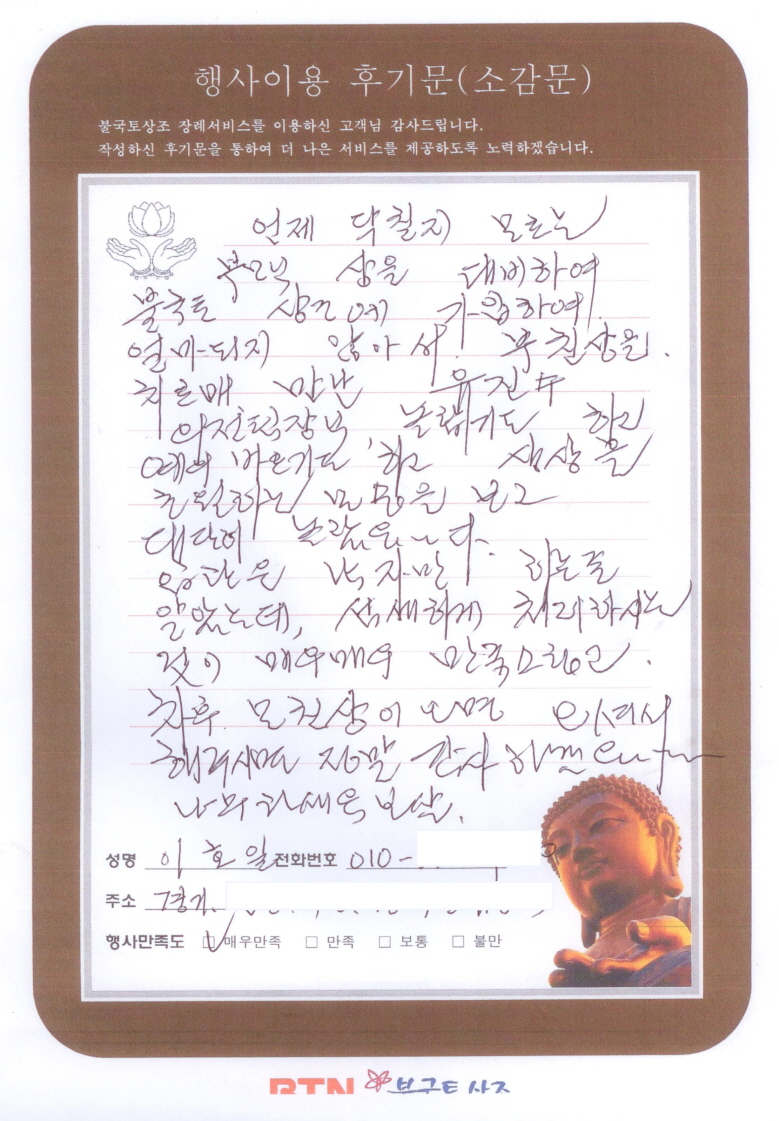 행사이용 후기문(소감문)
불국토상조 장례서비스를 이용하신 고객님 감사드립니다.
작성하신 후기문을 통하여 더 나은 서비스를 제공하도록 노력하겠습니다.
언제 닥칠지 모르는
부모님 상을 대비하여
불국토 상조에 가입하여
얼마되지 않아서. 부친상을.
치르매 만난 유진수
의전팀장님 놀랍기도 하고
예의 바르기도 하고 상을
보고
대단히 놀랐읍니다.
하는줄
알았는데, 섬세하게 처리하시는
것이 매우매우 만족스럽고.
차후. 모친상이 오면 오셔서
해주시면 정말 감사 하겠습니다
나무관세음보살.
성명 이 호 일 전화번호 010-
주소 경기
행사만족도 □매우만족 □ 만족 □ 보통 □ 불만
BTN 불국토 상조